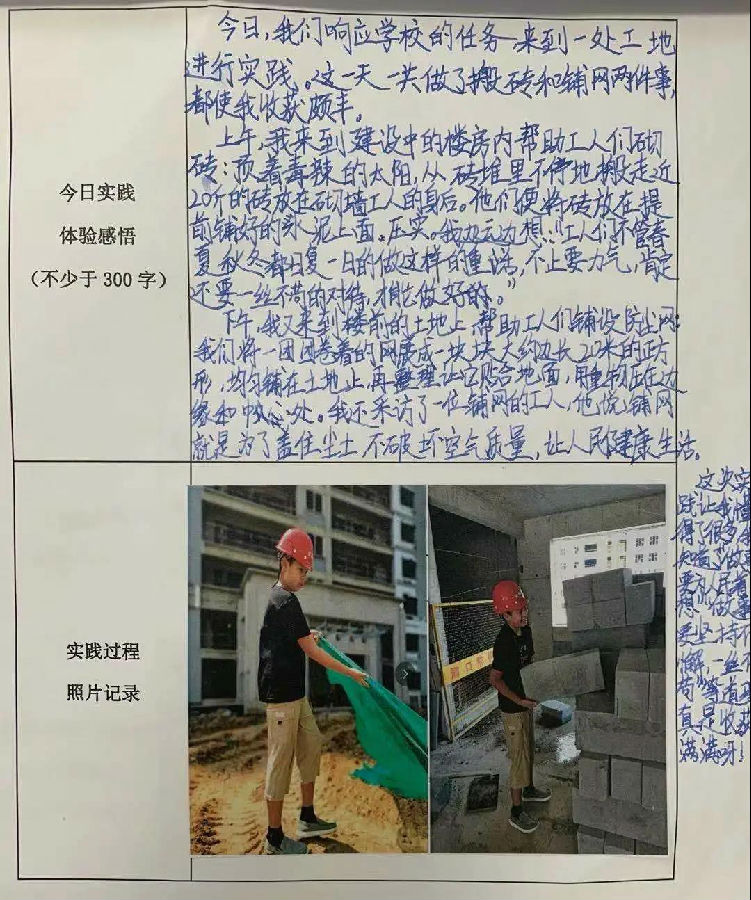 今日实践
体验感悟
（不少于 300 字）
今日，我们响应学校的任务 来到一处工地
进行实践。这一天一共做了搬砖和铺网两件事，
都使我收获颇丰。
上午，我来到建设中的楼房内帮助工人们砌
砖：顶着毒辣的太阳，从砖堆里不停地搬走近
20斤的砖放在砌墙工人的身后。他们便将砖放在提
前铺好的水泥上面。压实。我边运边想：“工人们不管春
夏秋冬都日复一日的做这样的重活，不止要力气，肯定
还要一丝不苟的对待，才能做好的。”
下午，我又来到楼前的土地上 帮助工人们铺设防尘网：
我们将一团团卷着的网展成一块块大约边长20米的正方
形，均匀铺在土地上，再整理让它贴合地面，用重物压在边
缘和中心处。我还采访了一位铺网的工人，他说：铺网
就是为了盖住尘土 不破坏空气质量，让人民健康生活。
这次实
践让我懂
得了很多
知道了做
要
坚持不
懈，一丝不
苟”等道
真是收获
满满呀！
实践过程
照片记录